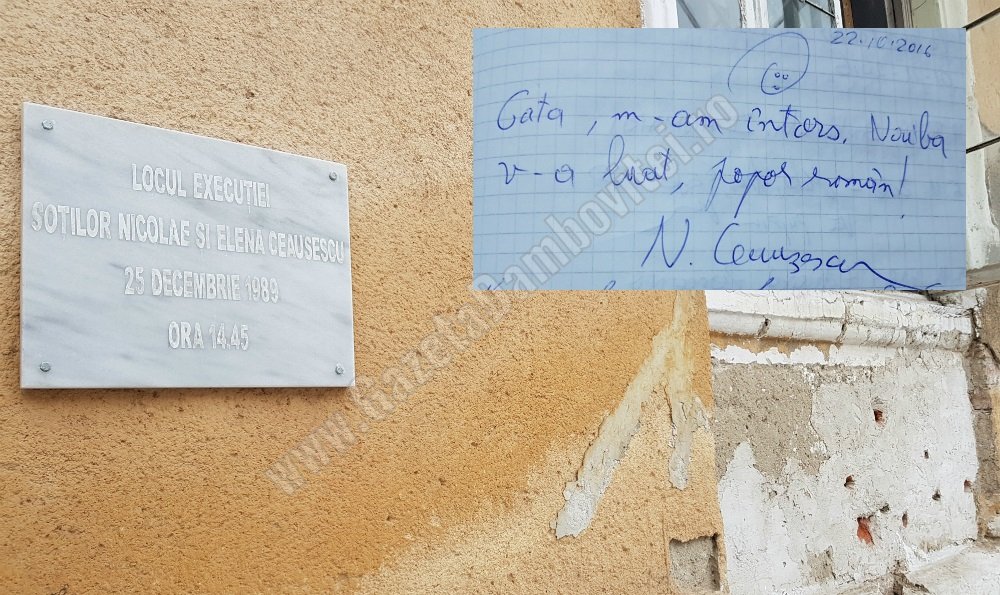 LOCUL EXECUȚIEI
SOTILOR NICOLAE SI ELENA CEAUSESCU
25 DECEMBRIE 1989
ORA 14.45
22.10.2016
Gata, m-am întors. Noaiba
v-a luat, popor român!
N. Ceaușescu
www.GazetaDambovitei.ro